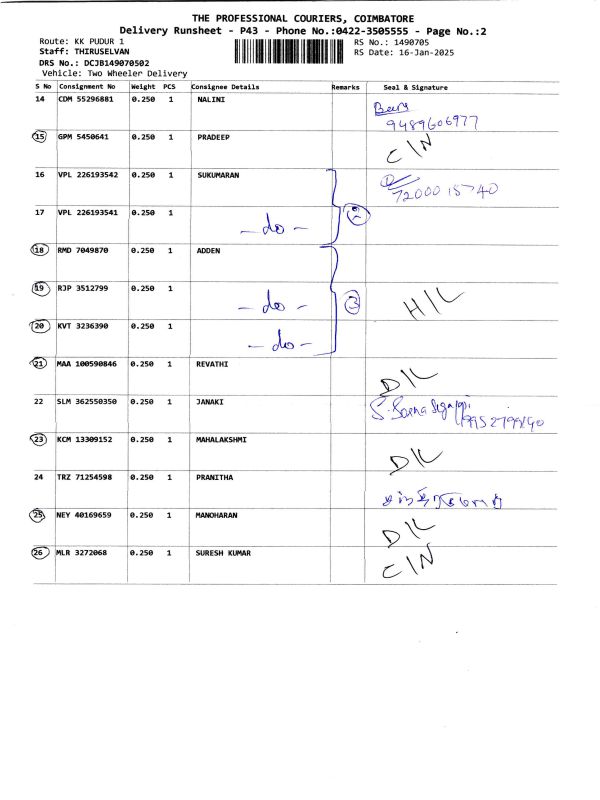 THE PROFESSIONAL COURIERS, COIMBATORE
Delivery Runsheet - P43 - Phone No.:0422-3505555 - Page No.:2
Route: KK PUDUR 1 RS No.: 1490705
Staff: THIRUSELVAN RS Date: 16-Jan-2025
DRS No.: DCJB149070502
Vehicle: Two Wheeler Delivery
S No Consignment No Weight PCS Consignee Details Remarks Seal & Signature
14 CDM 55296881 0.250 1 NALINI
9489606977
15 GPM 5450641 0.250 1 PRADEEP C/N
16 VPL 226193542 0.250 1 SUKUMARAN 7200015740
17 VPL 226193541 0.250 1 - do - 2
18 RMD 7049870 0.250 1 ADDEN
19 RJP 3512799 0.250 1 - do - 3 H/L
20 KVT 3236390 0.250 1 - do -
21 MAA 100590846 0.250 1 REVATHI D/L
22 SLM 362550350 0.250 1 JANAKI
23 KCM 13309152 0.250 1 MAHALAKSHMI D/L
24 TRZ 71254598 0.250 1 PRANITHA
25 NEY 40169659 0.250 1 MANOHARAN D/L
26 MLR 3272068 0.250 1 SURESH KUMAR C/N